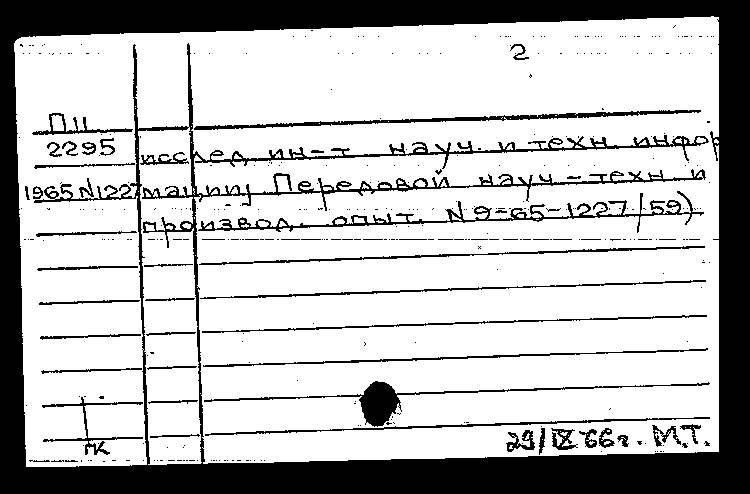 2
П11
2295 исслед. ин-т науч. и техн. инфор
1965 N1227 мации. Передовой науч.-техн. и
производ. опыт. N 9-65-1227/59)
ПК
29/IX 66 г. М.Т.